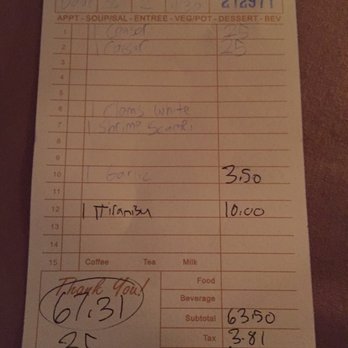 212971
APPT - SOUP/SAL - ENTREE - VEG/POT - DESSERT - BEV
1 25
2 25
3
4
5
6 1 Clams White
7 1 Shrimp Scampi
8
9
10 1 Garlic 3.50
11
12 1 Tiramisu 10.00
13
14
15 Coffee Tea Milk
Thank You! Food
67.31 Beverage
Subtotal 63.50
35 Tax 3.81